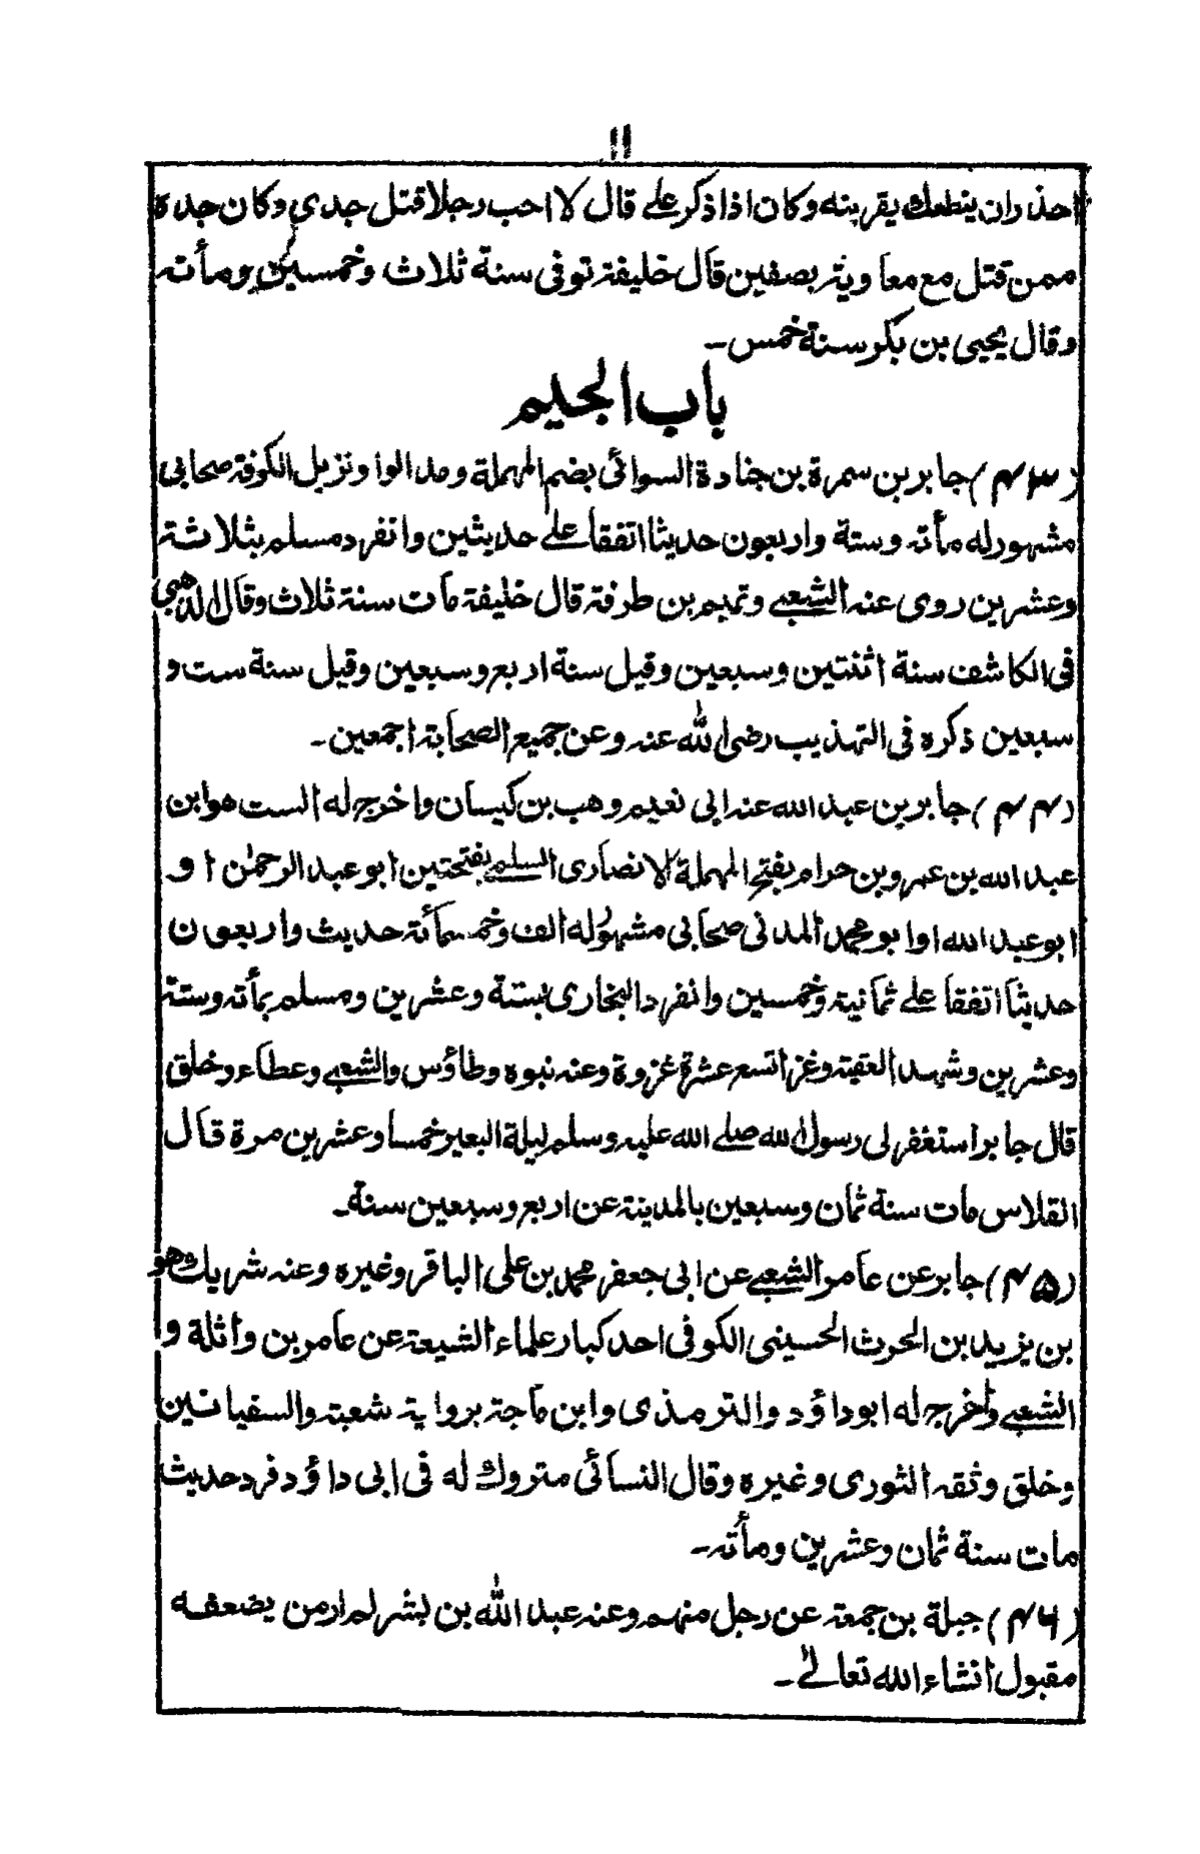 ١١
احذر ان ينطعك بقرينه وكان اذا ذكر علے قال لا احب رجلا قتل جدي وكان جده
ممن قتل مع معاوية بصفين قال خليفة توفى سنة ثلاث وخمسين ومأته
وقال يحيى بن بكر سنة خمس۔
باب الجيم
(۴۳) جابر بن سمرة بن جنادة السوائى بضم المهملة ومد الواو نزيل الكوفة صحابى
مشهور له مأته وستة واربعون حديثا اتفقا علے حديثين وانفرد مسلم بثلاثة
وعشرين روى عنه الشعبے وتميم بن طرفة قال خليفة مات سنة ثلاث وقال الذهبي
فى الكاشف سنة اثنتين وسبعين وقيل سنة اربع وسبعين وقيل سنة ست و
سبعين ذكره فى التهذيب رضى الله عنه وعن جميع الصحابة اجمعين۔
(۴۴) جابر بن عبد الله عنه ابى نعيم وهب بن كيسان واخرج له الست هو ابن
عبد الله بن عمرو بن حرام بفتح المهملة الانصارى السلمے بفتحتين ابو عبد الرحمٰن او
ابو عبد الله او ابو محمد المدنى صحابى مشهور له الف وخمسمائة حديث واربعون
حديثا اتفقا علے ثمانية وخمسين وانفرد البخارى بستة وعشرين ومسلم بمأته وستة
وعشرين وشهد العقبة وغزا تسع عشرة غزوة وعنه نبوه وطاؤس والشعبے وعطاء وخلق
قال جابر استغفر لى رسول الله صلے الله عليه وسلم ليلة البعير خمسا وعشرين مرة قال
القلاس مات سنة ثمان وسبعين بالمدينة عن اربع وسبعين سنة۔
(۴۵) جابر عن عامر الشعبے عن ابى جعفر محمد بن على الباقر وغيره وعنه شريك هو
بن يزيد بن الحرث الحسينى الكوفى احد كبار علماء الشيعة عن عامر بن واثلة و
الشعبے وأخرج له ابو داؤد والترمذى وابن ماجة برواية شعبة والسفيانين
وخلق وثقه الثورى وغيره وقال النسائى متروك له فى ابى داؤد فرد حديث
مات سنة ثمان وعشرين ومأته۔
(۴۶) جبلة بن جمعة عن رجل منهم وعنه عبد الله بن بشر لم ار من يضعفه
مقبول انشاء الله تعالےٰ۔